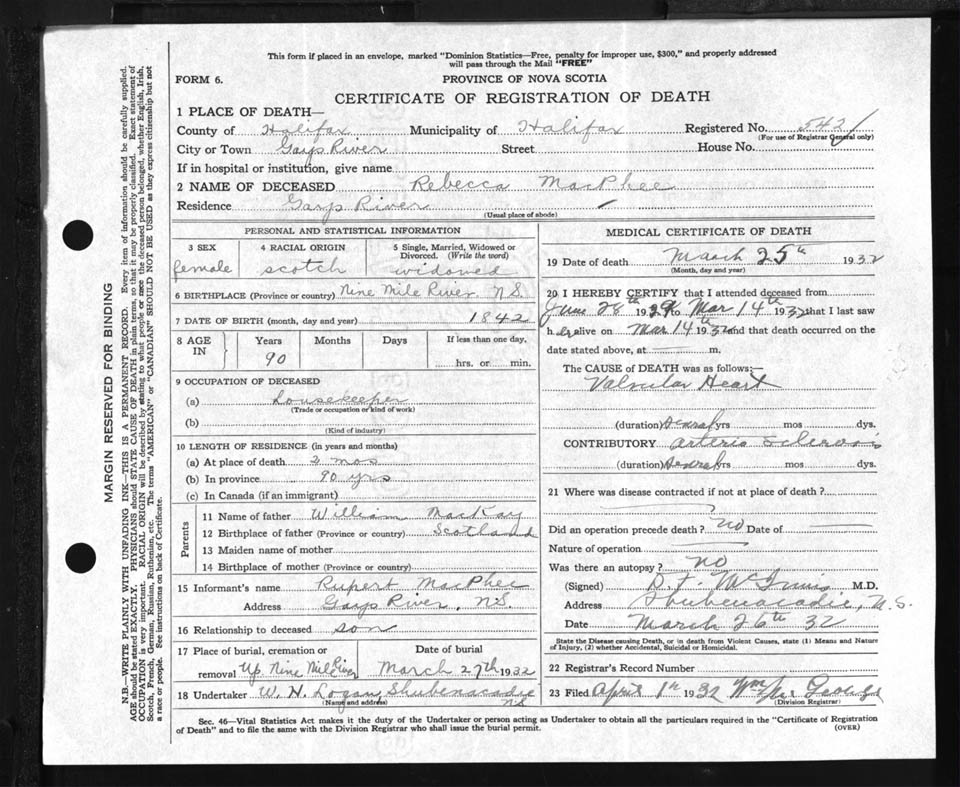 This form if placed in an envelope, marked "Dominion Statistics—Free, penalty for improper use, $300," and properly addressed
will pass through the Mail "FREE"
FORM 6.
PROVINCE OF NOVA SCOTIA
CERTIFICATE OF REGISTRATION OF DEATH
1 PLACE OF DEATH—
County of Halifax Municipality of Halifax Registered No. 5431
(For use of Registrar General only)
City or Town Gays River Street House No.
If in hospital or institution, give name
2 NAME OF DECEASED Rebecca MacPhee
Residence Gays River
(Usual place of abode)
PERSONAL AND STATISTICAL INFORMATION
3 SEX 4 RACIAL ORIGIN 5 Single, Married, Widowed or
Divorced. (Write the word)
female scotch widowed
6 BIRTHPLACE (Province or country) Nine Mile River, N.S.
7 DATE OF BIRTH (month, day and year) 1842
8 AGE IN Years Months Days If less than one day,
90 hrs. or min.
9 OCCUPATION OF DECEASED
(a) housekeeper
(Trade or occupation or kind of work)
(b)
(Kind of industry)
10 LENGTH OF RESIDENCE (in years and months)
(a) At place of death 2 mos
(b) In province 90 yrs
(c) In Canada (if an immigrant)
Parents
11 Name of father William MacKay
12 Birthplace of father (Province or country) Scotland
13 Maiden name of mother
14 Birthplace of mother (Province or country)
15 Informant's name Rupert MacPhee
Address Gays River, N.S.
16 Relationship to deceased son
17 Place of burial, cremation or removal Date of burial
Up. Nine Mile River March 27th 1932
18 Undertaker W. H. Logan, Shubenacadie
(Name and address) N.S
MEDICAL CERTIFICATE OF DEATH
19 Date of death March 25th 1932
(Month, day and year)
20 I HEREBY CERTIFY that I attended deceased from
June 28th 1929 to Mar 14th 1932 that I last saw
her alive on Mar 14th 1932 and that death occurred on the
date stated above, at m.
The CAUSE of DEATH was as follows:—
Valvular Heart
(duration) Several yrs mos dys.
CONTRIBUTORY Arterio Sclerosis
(duration) Several yrs mos dys.
21 Where was disease contracted if not at place of death?
Did an operation precede death? no Date of
Nature of operation
Was there an autopsy? no
(Signed) D. F. McInnis M.D.
Address Shubenacadie, N.S.
Date March 26th 32
State the Disease causing Death, or in death from Violent Causes, state (1) Means and Nature
of Injury, (2) whether Accidental, Suicidal or Homicidal.
22 Registrar's Record Number
23 Filed April 1st 1932 Wm
(Division Registrar)
Sec. 46—Vital Statistics Act makes it the duty of the Undertaker or person acting as Undertaker to obtain all the particulars required in the "Certificate of Registration
of Death" and to file the same with the Division Registrar who shall issue the burial permit. (OVER)
MARGIN RESERVED FOR BINDING
N.B.—WRITE PLAINLY WITH UNFADING INK—THIS IS A PERMANENT RECORD. Every item of information should be carefully supplied.
AGE should be stated EXACTLY. PHYSICIANS should STATE CAUSE OF DEATH in plain terms, so that it may be properly classified. Exact statement of
OCCUPATION is very important. RACIAL ORIGIN will be described by stating to what people or race the deceased person belonged, whether English, Irish,
Scotch, French, German, Russian, Ruthenian, etc. The terms "AMERICAN" or "CANADIAN" SHOULD NOT BE USED as they express citizenship but not
a race or people. See instructions on back of Certificate.